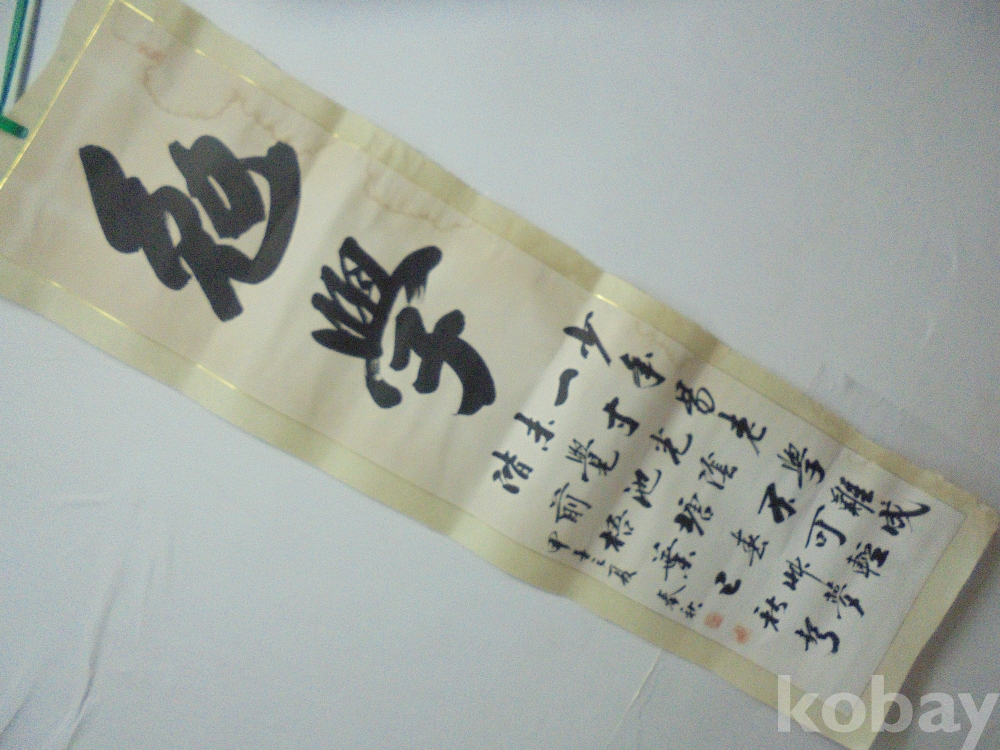 勉學
少年易老學難成
一寸光陰不可輕
未覺池塘春艸夢
階前梧葉已秋聲
kobay